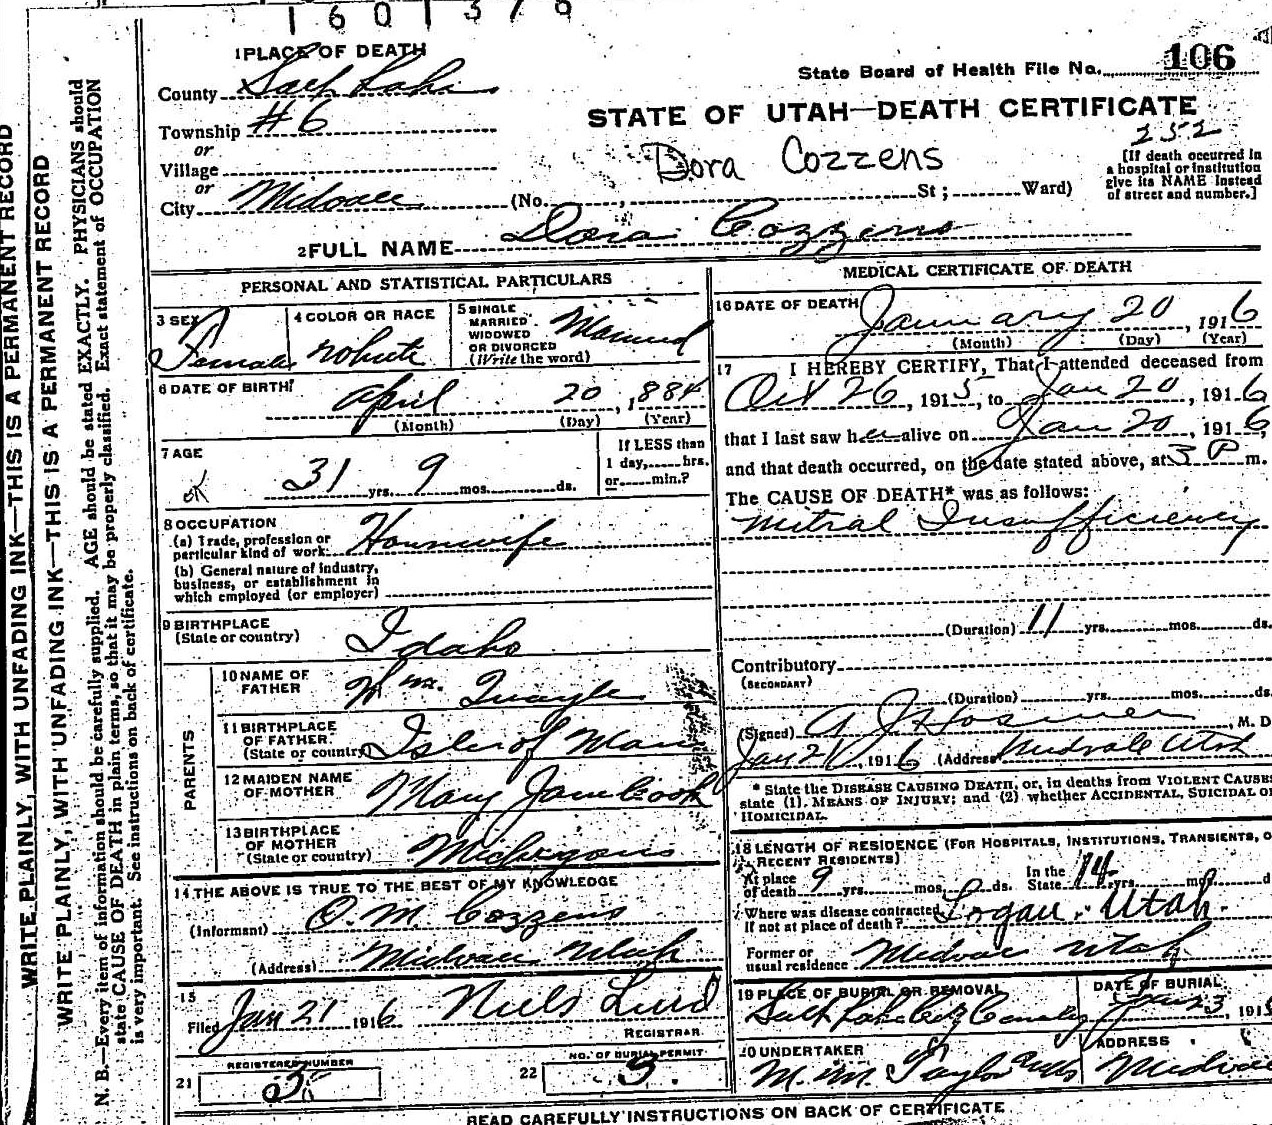 1601378
1 PLACE OF DEATH
State Board of Health File No. 106
County Salt Lake
STATE OF UTAH—DEATH CERTIFICATE
Township #6
252
or
Dora Cozzens
[If death occurred in
a hospital or institution
give its NAME instead
of street and number.]
Village
or
City Midvale (No. , St; Ward)
2 FULL NAME Dora Cozzens
PERSONAL AND STATISTICAL PARTICULARS
3 SEX Female
4 COLOR OR RACE white
5 SINGLE MARRIED WIDOWED OR DIVORCED (Write the word) Married
6 DATE OF BIRTH April 20, 1884
(Month) (Day) (Year)
7 AGE
If LESS than
1 day, hrs.
or min.?
OK 31 yrs. 9 mos. ds.
8 OCCUPATION
(a) Trade, profession or
particular kind of work Housewife
(b) General nature of industry,
business, or establishment in
which employed (or employer)
9 BIRTHPLACE
(State or country) Idaho
PARENTS
10 NAME OF FATHER Wm. Quayle
11 BIRTHPLACE OF FATHER (State or country) Isle of Man
12 MAIDEN NAME OF MOTHER Mary Jane Cook
13 BIRTHPLACE OF MOTHER (State or country) Michigan
14 THE ABOVE IS TRUE TO THE BEST OF MY KNOWLEDGE
(Informant) O. M. Cozzens
(Address) Midvale Utah
15
Filed Jan 21 1916 Niels Lind
REGISTRAR
REGISTERED NUMBER
NO. OF BURIAL PERMIT
21
22 3.
MEDICAL CERTIFICATE OF DEATH
16 DATE OF DEATH January 20, 1916
(Month) (Day) (Year)
17 I HEREBY CERTIFY, That I attended deceased from
Oct 26, 1915, to Jan 20, 1916
that I last saw her alive on Jan 20, 1916,
and that death occurred, on the date stated above, at 3 P m.
The CAUSE OF DEATH* was as follows:
Mitral Insufficiency
(Duration) 11 yrs. mos. ds.
Contributory
(SECONDARY)
(Duration) yrs. mos. ds.
(Signed) A J Hosmer, M. D
Jan 21, 1916 (Address) Midvale Utah
* State the DISEASE CAUSING DEATH, or, in deaths from VIOLENT CAUSES
state (1) MEANS OF INJURY; and (2) whether ACCIDENTAL, SUICIDAL or
HOMICIDAL.
18 LENGTH OF RESIDENCE (FOR HOSPITALS, INSTITUTIONS, TRANSIENTS, O
RECENT RESIDENTS)
At place of death 9 yrs. mos. ds. In the State 14 yrs. mos. d
Where was disease contracted
if not at place of death? Logan, Utah.
Former or
usual residence Midvale Utah
19 PLACE OF BURIAL OR REMOVAL
Salt Lake City Cemetery
DATE OF BURIAL
Jan 23, 191
20 UNDERTAKER
M. M. Taylor
ADDRESS
Midvale
READ CAREFULLY INSTRUCTIONS ON BACK OF CERTIFICATE
WRITE PLAINLY, WITH UNFADING INK—THIS IS A PERMANENT RECORD
WRITE PLAINLY, WITH UNFADING INK—THIS IS A PERMANENT RECORD
N. B.—Every item of information should be carefully supplied. AGE should be stated EXACTLY. PHYSICIANS should
state CAUSE OF DEATH in plain terms, so that it may be properly classified. Exact statement of OCCUPATION
is very important. See instructions on back of certificate.